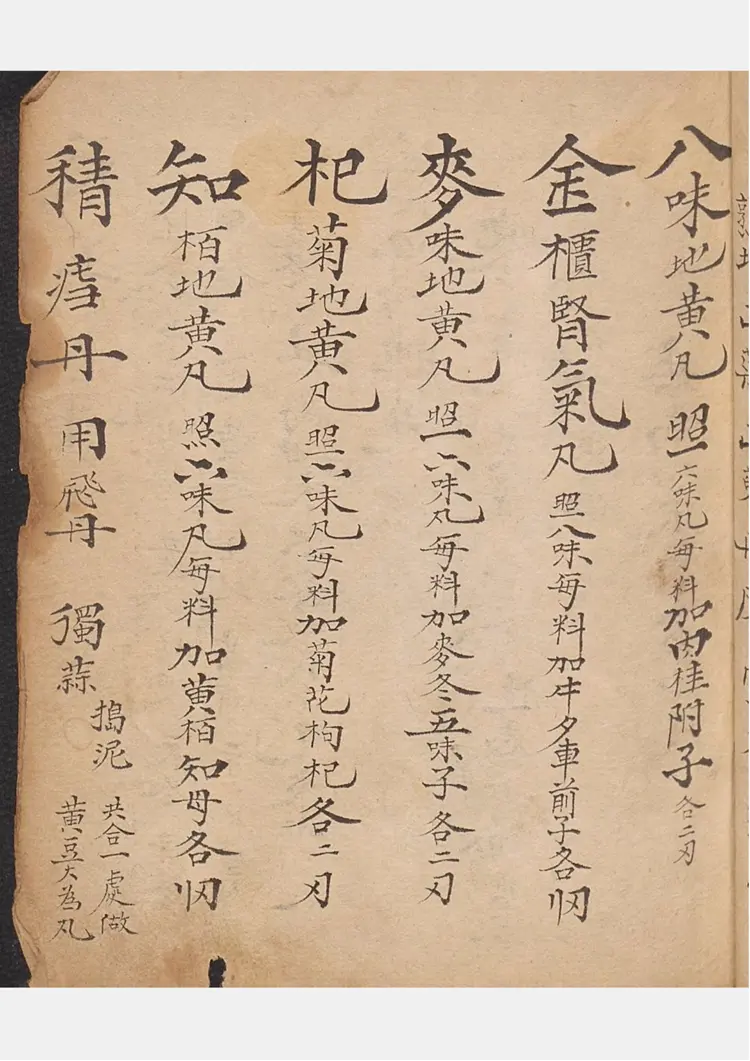 八味地黄凡 照六味凡每料加肉桂附子各二刃
金匱腎氣凡 照八味每料加牛夕車前子各刃
麥味地黄凡 照六味凡每料加麥冬五味子各二刃
杞菊地黄凡 照六味凡每料加菊花枸杞各二刃
知栢地黄凡 照六味凡每料加黄栢知母各刃
丹 用飛丹 獨蒜 搗泥 共合一處做黄豆大為凡